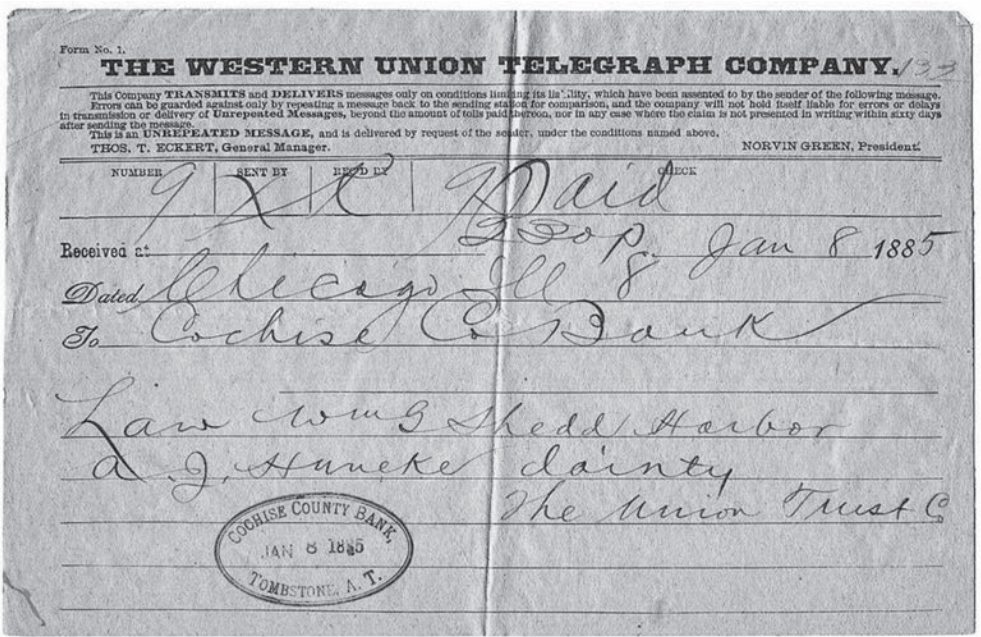 Form No. 1.
THE WESTERN UNION TELEGRAPH COMPANY. 133
This Company TRANSMITS and DELIVERS messages only on conditions limiting its liability, which have been assented to by the sender of the following message.
Errors can be guarded against only by repeating a message back to the sending station for comparison, and the company will not hold itself liable for errors or delays
in transmission or delivery of Unrepeated Messages, beyond the amount of tolls paid thereon, nor in any case where the claim is not presented in writing within sixty days
after sending the message.
This is an UNREPEATED MESSAGE, and is delivered by request of the sender, under the conditions named above.
THOS. T. ECKERT, General Manager. NORVIN GREEN, President.
NUMBER SENT BY REC'D BY CHECK
9 Paid
Received at 220p. Jan 8 1885
Dated Chicago Ill 8
To Cochise Co Bank
Law Wm G Shedd Harbor
A. J. Huneke dainty
The Union Trust Co
COCHISE COUNTY BANK,
JAN 8 1885
TOMBSTONE, A. T.